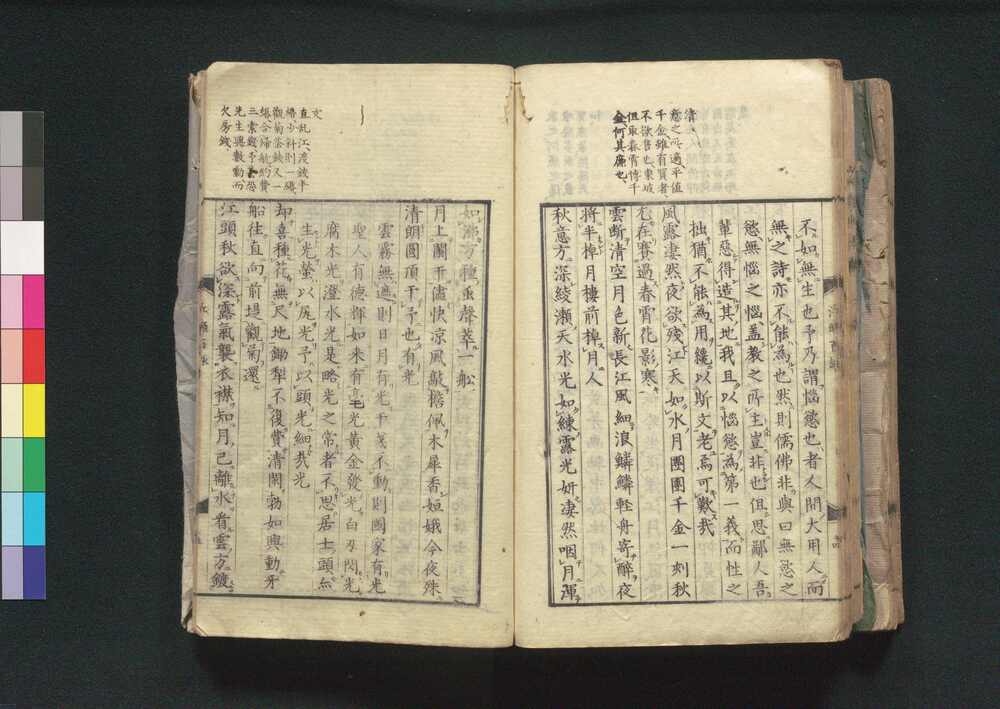 意之所適平値
千金雖有買者
不欲售也東坡
但取春宵博千
金何其廉也
不如無生也予乃謂惱慾也者人間大用人而
無之詩亦不能為也然則儒佛非與曰無慾之
慾無惱之惱蓋教之所主豈非也但思鄙人吾
輩惡得造其地我且以惱慾為第一義而性之
拙猶不能為用纔以斯文老焉可歎哉
風露凄然夜欲殘江天如水月團團千金一刻秋
尤在賽過春宵花影寒
雲断清空月色新長江風細浪鱗鱗軽舟寄醉夜
将半棹月棲前棹月人
秋意方深綾瀬天水光如練露光妍凄然咽月渾
如沸万種虫聲萃一船
月上闌干儘快涼風敲檐佩木犀香姮娥今夜殊
清朗圓頂干予也有光
雲霧無遮則日月有光干戈不動則國家有光
聖人有徳御如来有毫光黄金發光白刃閃光
腐木光澄水光是略光之常者不思居士頭亦
生光螢以尻光予以頭光細哉光
却喜種花無尺地鋤犁不復費清閑勃如興動牙
船往直向前堤觀菊還
江頭秋欲深露氣襲衣襟知月已離水看雲方鍍
文
直乱江渡銭半
錢少許則一磯
觀菊茶銭又一
三索銭予
先生聽數動而
欠房銭